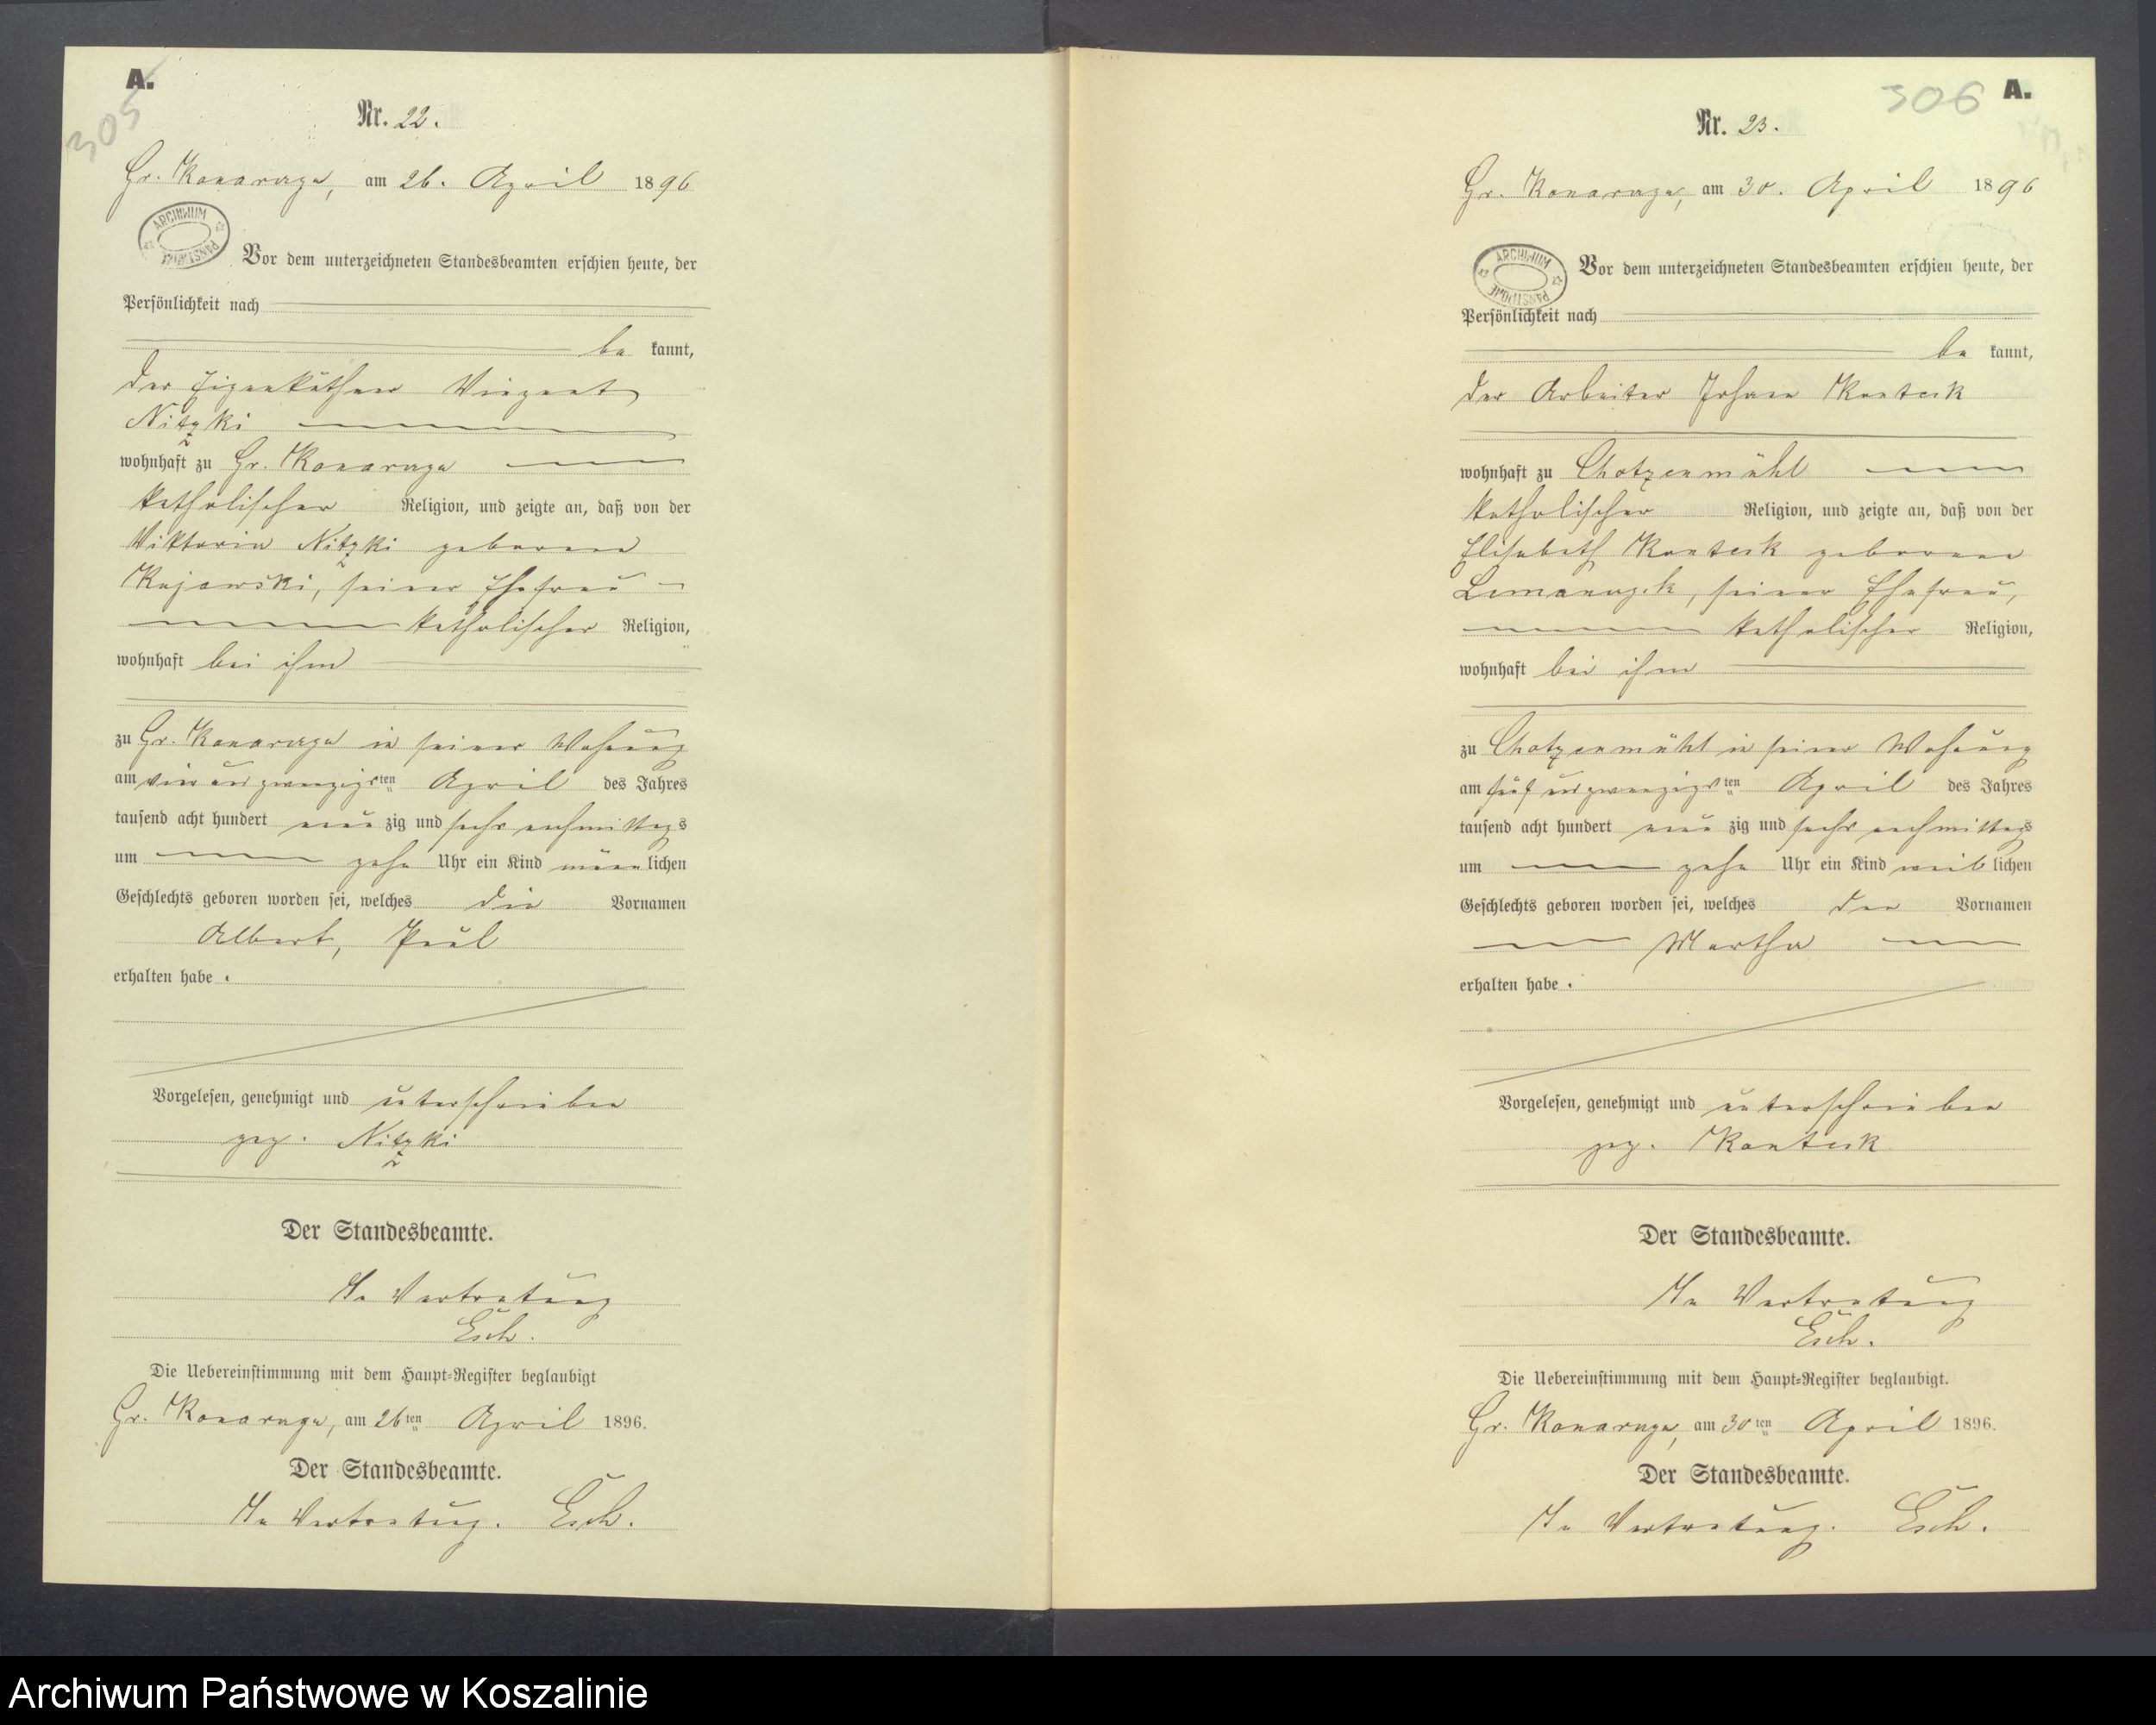 A.
305
Nr. 22.
Gr. Konarczyn, am 26. April 1896
ARCHIWUM PAŃSTWOWE
Vor dem unterzeichneten Standesbeamten erschien heute, der
Persönlichkeit nach
be kannt,
der Eigenkäthner Vinzent
Nitzki
wohnhaft zu Gr. Konarczyn
katholischer Religion, und zeigte an, daß von der
Viktoria Nitzki geborene
Kujawski, seiner Ehefrau
katholischer Religion,
wohnhaft bei ihm
zu Gr. Konarczyn in seiner Wohnung
am vier und zwanzigsten April des Jahres
tausend acht hundert neun zig und sechs nachmittags
um zehn Uhr ein Kind männlichen
Geschlechts geboren worden sei, welches die Vornamen
Albert, Paul
erhalten habe.
Vorgelesen, genehmigt und unterschrieben
gez. Nitzki
Der Standesbeamte.
In Vertretung
Esch.
Die Uebereinstimmung mit dem Haupt-Register beglaubigt
Gr. Konarczyn, am 26ten April 1896.
Der Standesbeamte.
In Vertretung. Esch.
306 A.
Nr. 23.
Gr. Konarczyn, am 30. April 1896
ARCHIWUM PAŃSTWOWE
Vor dem unterzeichneten Standesbeamten erschien heute, der
Persönlichkeit nach
be kannt,
der Arbeiter Johann Kantack
wohnhaft zu Chotzenmühl
katholischer Religion, und zeigte an, daß von der
Elisabeth Kantack geborene
seiner Ehefrau,
katholischer Religion,
wohnhaft bei ihm
zu Chotzenmühl in seiner Wohnung
am fünf und zwanzigsten April des Jahres
tausend acht hundert neun zig und sechs nachmittags
um zehn Uhr ein Kind weiblichen
Geschlechts geboren worden sei, welches den Vornamen
Martha
erhalten habe.
Vorgelesen, genehmigt und unterschrieben
gez. Kantack
Der Standesbeamte.
In Vertretung
Esch.
Die Uebereinstimmung mit dem Haupt-Register beglaubigt.
Gr. Konarczyn, am 30ten April 1896.
Der Standesbeamte.
In Vertretung. Esch.
Archiwum Państwowe w Koszalinie